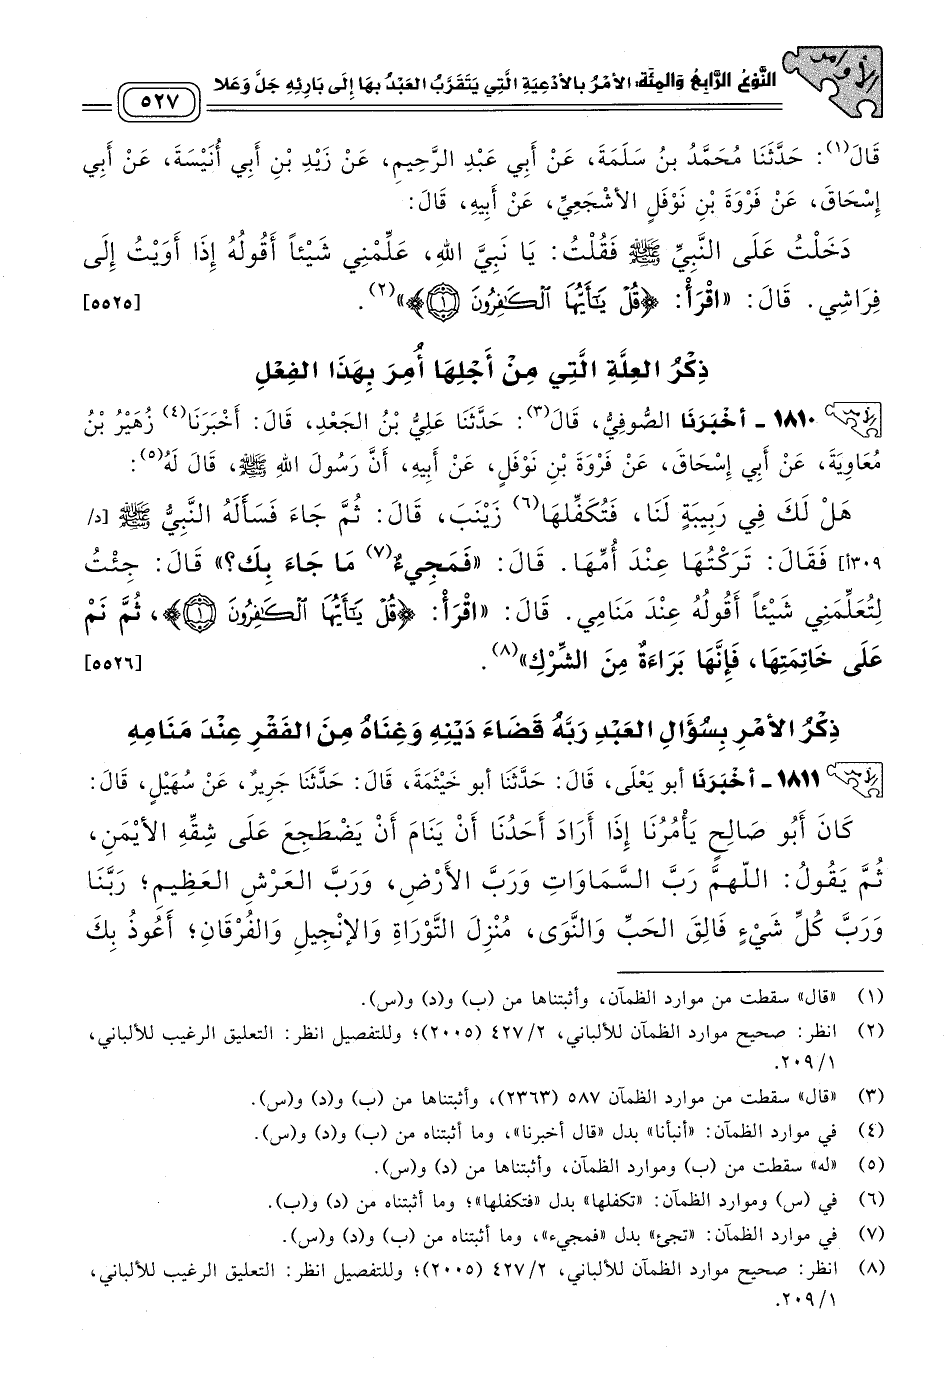 الأوامر
النَّوْعُ الرَّابِعُ وَالمِئَة: الأَمْرُ بِالأَدْعِيَةِ الَّتِي يَتَقَرَّبُ العَبْدُ بِهَا إِلَى بَارِئِهِ جَلَّ وَعَلا
٥٢٧
قَالَ(١): حَدَّثَنَا مُحَمَّدُ بنُ سَلَمَةَ، عَنْ أَبِي عَبْدِ الرَّحِيمِ، عَنْ زَيْدِ بْنِ أَبِي أُنَيْسَةَ، عَنْ أَبِي
إِسْحَاقَ، عَنْ فَرْوَةَ بْنِ نَوْفَلٍ الأَشْجَعِيِّ، عَنْ أَبِيهِ، قَالَ:
دَخَلْتُ عَلَى النَّبِيِّ ﷺ فَقُلْتُ: يَا نَبِيَّ اللهِ، عَلِّمْنِي شَيْئاً أَقُولُهُ إِذَا أَوَيْتُ إِلَى
فِرَاشِي. قَالَ: «اقْرَأْ: ﴿قُلْ يَٰٓأَيُّهَا ٱلْكَٰفِرُونَ ۝١﴾»(٢). [٥٥٢٥]
ذِكْرُ العِلَّةِ الَّتِي مِنْ أَجْلِهَا أُمِرَ بِهَذَا الفِعْلِ
١٨١٠ - أَخْبَرَنَا الصُّوفِيُّ، قَالَ(٣): حَدَّثَنَا عَلِيُّ بْنُ الجَعْدِ، قَالَ: أَخْبَرَنَا(٤) زُهَيْرُ بْنُ
مُعَاوِيَةَ، عَنْ أَبِي إِسْحَاقَ، عَنْ فَرْوَةَ بْنِ نَوْفَلٍ، عَنْ أَبِيهِ، أَنَّ رَسُولَ اللهِ ﷺ، قَالَ لَهُ(٥):
هَلْ لَكَ فِي رَبِيبَةٍ لَنَا، فَتُكَفِّلَهَا(٦) زَيْنَبَ، قَالَ: ثُمَّ جَاءَ فَسَأَلَهُ النَّبِيُّ ﷺ [د/
٣٠٩أ] فَقَالَ: تَرَكْتُهَا عِنْدَ أُمِّهَا. قَالَ: «فَمَجِيءٌ(٧) مَا جَاءَ بِكَ؟» قَالَ: جِئْتُ
لِتُعَلِّمَنِي شَيْئاً أَقُولُهُ عِنْدَ مَنَامِي. قَالَ: «اقْرَأْ: ﴿قُلْ يَٰٓأَيُّهَا ٱلْكَٰفِرُونَ ۝١﴾، ثُمَّ نَمْ
عَلَى خَاتِمَتِهَا، فَإِنَّهَا بَرَاءَةٌ مِنَ الشِّرْكِ»(٨). [٥٥٢٦]
ذِكْرُ الأَمْرِ بِسُؤَالِ العَبْدِ رَبَّهُ قَضَاءَ دَيْنِهِ وَغِنَاهُ مِنَ الفَقْرِ عِنْدَ مَنَامِهِ
١٨١١ - أَخْبَرَنَا أَبو يَعْلَى، قَالَ: حَدَّثَنَا أَبو خَيْثَمَةَ، قَالَ: حَدَّثَنَا جَرِيرٌ، عَنْ سُهَيْلٍ، قَالَ:
كَانَ أَبُو صَالِحٍ يَأْمُرُنَا إِذَا أَرَادَ أَحَدُنَا أَنْ يَنَامَ أَنْ يَضْطَجِعَ عَلَى شِقِّهِ الأَيْمَنِ،
ثُمَّ يَقُولُ: اللّهمَّ رَبَّ السَّمَاوَاتِ وَرَبَّ الأَرْضِ، وَرَبَّ العَرْشِ العَظِيمِ؛ رَبَّنَا
وَرَبَّ كُلِّ شَيْءٍ فَالِقَ الحَبِّ وَالنَّوَى، مُنْزِلَ التَّوْرَاةِ وَالإِنْجِيلِ وَالفُرْقَانِ؛ أَعُوذُ بِكَ
(١) «قال» سقطت من موارد الظمآن، وأثبتناها من (ب) و(د) و(س).
(٢) انظر: صحيح موارد الظمآن للألباني، ٤٢٧/٢ (٢٠٠٥)؛ وللتفصيل انظر: التعليق الرغيب للألباني،
٢٠٩/١.
(٣) «قال» سقطت من موارد الظمآن ٥٨٧ (٢٣٦٣)، وأثبتناها من (ب) و(د) و(س).
(٤) في موارد الظمآن: «أنبأنا» بدل «قال أخبرنا»، وما أثبتناه من (ب) و(د) و(س).
(٥) «له» سقطت من (ب) وموارد الظمآن، وأثبتناها من (د) و(س).
(٦) في (س) وموارد الظمآن: «تكفلها» بدل «فتكفلها»؛ وما أثبتناه من (د) و(ب).
(٧) في موارد الظمآن: «تجئ» بدل «فمجيء»، وما أثبتناه من (ب) و(د) و(س).
(٨) انظر: صحيح موارد الظمآن للألباني، ٤٢٧/٢ (٢٠٠٥)؛ وللتفصيل انظر: التعليق الرغيب للألباني،
٢٠٩/١.